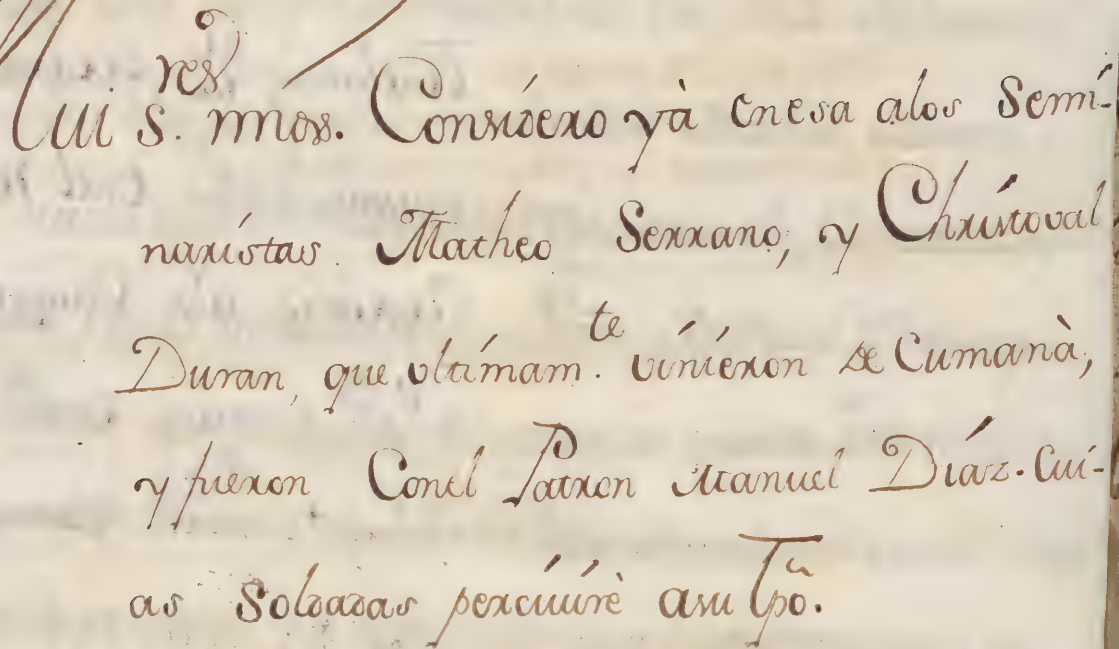 Mui S.res mios. Considero yà enesa alos Semi-
naristas Matheo Serrano, y Christoval
Duran, que ultimam.te vinieron de Cumanà,
y fueron Conel Patron Manuel Díaz. Cui-
as Soldadas percivirè asu tpõ.